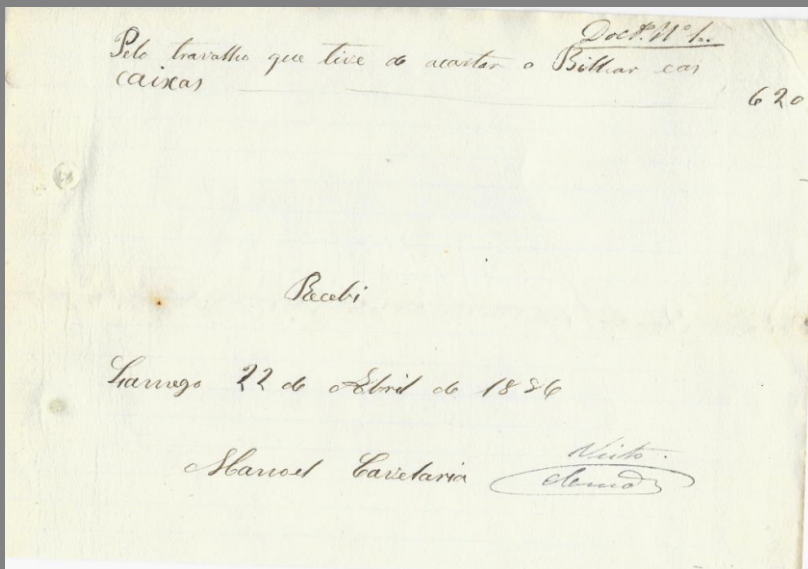 Doct. Nº 1.
Pelo travalho que tive de acartar o Bilhar eas
caixas 620
Recebi
Lamego 22 de Abril de 1896
Manoel Cavelaria
Visto.